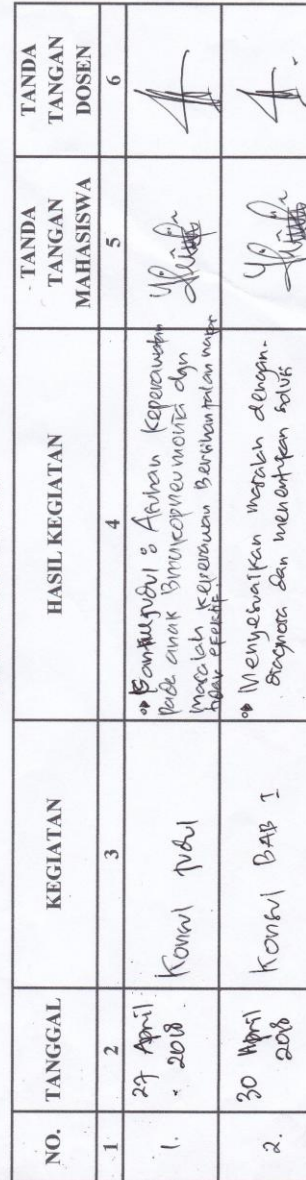 NO. TANGGAL KEGIATAN HASIL KEGIATAN TANDA TANGAN MAHASISWA TANDA TANGAN DOSEN
1 2 3 4 5 6
1. 27 April 2018 Konsul judul Ganti judul : Asuhan Keperawatan
Pada anak Bronkopneumonia dgn
masalah keperawatan Bersihan jalan napas
tidak efektif
2. 30 April 2018 Konsul BAB I Menyesuaikan masalah dengan
diagnosa dan menentukan solusi